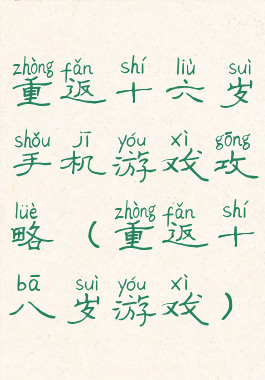 zhòng fǎn shí liù suì
重返十六岁
shǒu jī yóu xì gōng
手机游戏攻
lüè zhòng fǎn shí
略（重返十
bā suì yóu xì
八岁游戏）